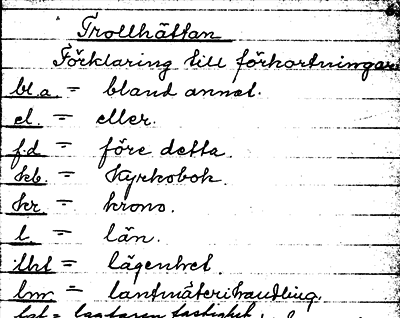 Trollhättan
Förklaring till förkortningar
bl.a. = bland annat.
el. = eller.
f.d = före detta.
kb. = Kyrkobok.
kr. = krono.
l. = län.
lht = lägenhet.
lm. = lantmäterihandling.